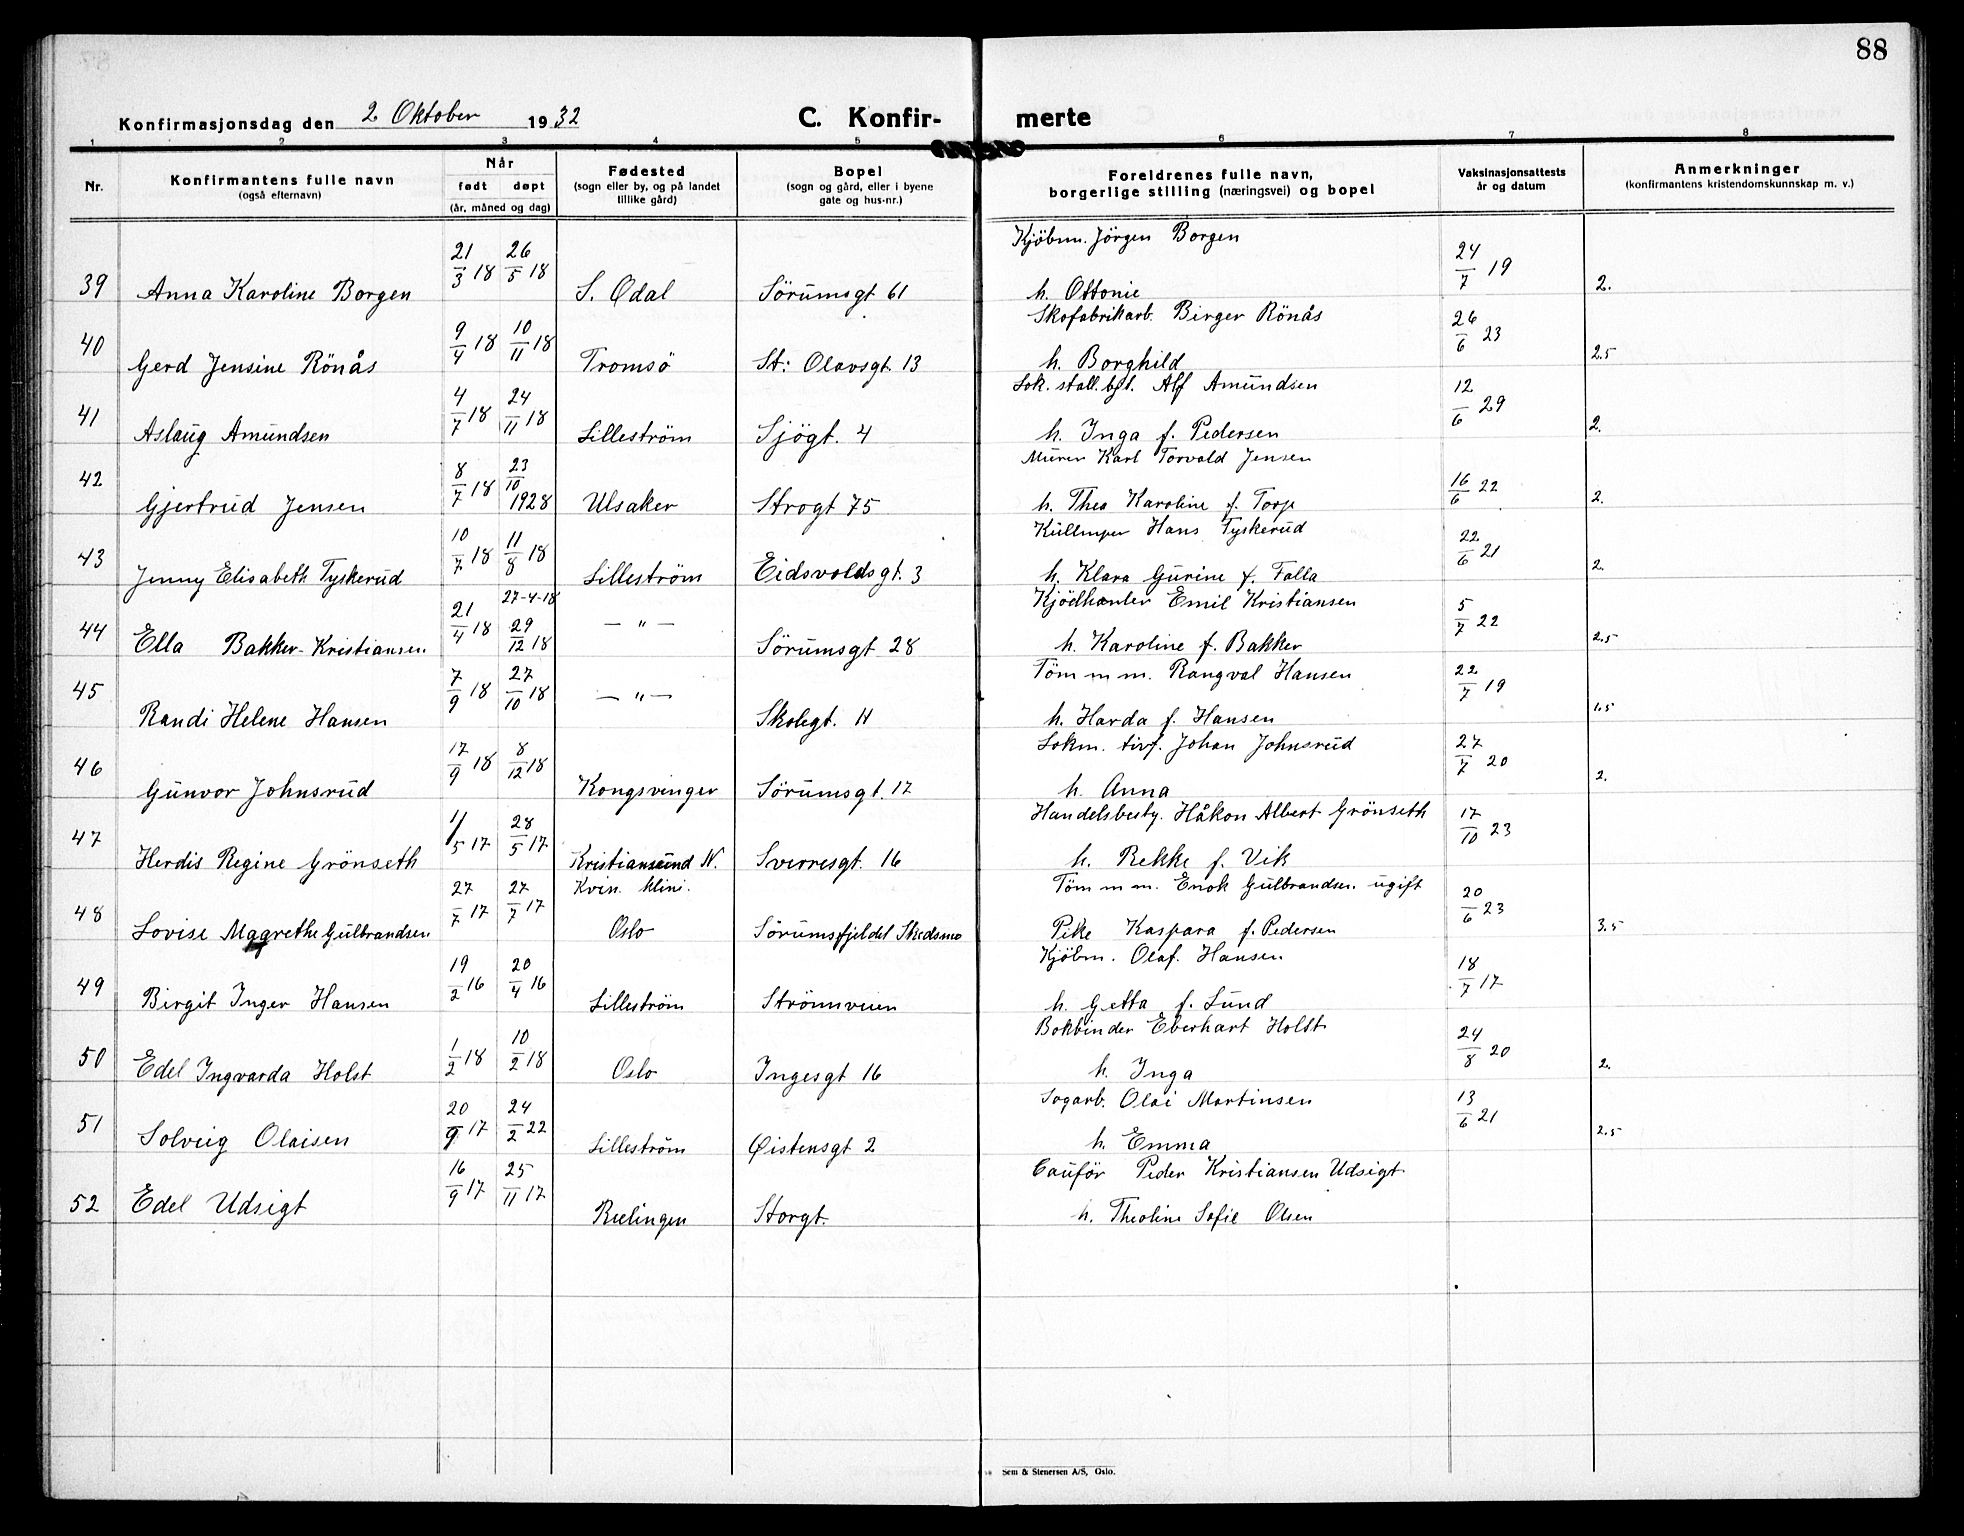 88
Konfirmasjonsdag den 2 Oktober 1932 C. Konfir- merte
1 2 3 4 5 6 7 8
Nr. Konfirmantens fulle navn (også efternavn) Når født døpt (år, måned og dag) Fødested (sogn eller by, og på landet tillike gård) Bopel (sogn og gård, eller i byene gate og hus-nr.) Foreldrenes fulle navn, borgerlige stilling (næringsvei) og bopel Vaksinasjonsattests år og datum Anmerkninger (konfirmantens kristendomskunnskap m. v.)
Kjöbm. Jörgen Borgen
39 Anna Karoline Borgen 21/3 18 26/5 18 S. Odal Sörumsgt 61 h. Ottonie 24/7 19 2.
Skofabrikarb. Birger Rönås
40 Gerd Jensine Rönås 9/4 18 10/11 18 Tromsö St: Olavsgt. 13 h. Borghild 26/6 23 2.5
Lok. stall. bgt. Alf Amundsen
41 Aslaug Amundsen 4/7 18 24/11 18 Lilleström Sjögt. 4 h. Inga f. Pedersen 12/6 29 2.
Murer Karl Torvald Jensen
42 Gjertrud Jensen 8/7 18 23/10 1928 Ulsaker Strogt 75 h. Thea Karoline f. Torp 16/6 22 2.
Hans Tyskerud
43 Jenny Elisabeth Tyskerud 10/7 18 11/8 18 Lilleström Eidsvoldsgt. 3 h. Klara Gurine f. Falla 22/6 21 2.
27-4-18 Kjödhanler Emil Kristiansen
44 Ella Bakker-Kristiansen 21/4 18 29/12 18 — " — Sörumsgt 28 h. Karoline f. Bakker 5/7 22 2.5
Töm m m. Rangval Hansen
45 Randi Helene Hansen 7/9 18 27/10 18 — " — Skolegt. 11 h. Harda f. Hansen 22/7 19 1.5
Lokm. tirf. Johan Johnsrud
46 Gunvor Johnsrud 17/9 18 8/12 18 Kongsvinger Sörumsgt. 17 h. Anna 27/7 20 2.
Handelsbesty. Håkon Albert Grönseth
47 Herdis Regine Grönseth 1/5 17 28/5 17 Kristiansund N. Sverresgt. 16 h. Rekke f. Vik 17/10 23
Kvin. klini. Töm m m. Enok Gulbrandsen. ugift
48 Lovise Magrethe Gulbrandsen 27/7 17 27/7 17 Oslo Sörumsfjeldet Skedsmo Pike Kaspara f. Pedersen 20/6 23 3.5
Kjöbm. Olaf. Hansen
49 Birgit Inger Hansen 19/2 16 20/4 16 Lilleström Strömsveien h. Getta f. Lund 18/7 17
Bokbinder Eberhart Holst
50 Edel Ingvarda Holst 1/2 18 10/2 18 Oslo Ingesgt 16 h. Inga 24/8 20 2.
Sagarb. Olai Martinsen
51 Solveig Olaisen 20/9 17 24/2 22 Lilleström Øistensgt 2 h. Emma 13/6 21 2.5
Cauför Peder Kristiansen Udsigt
52 Edel Udsigt 16/9 17 25/11 17 Relingen Storgt. h. Theoline Sofie Olsen
Sem & Stenersen A/S, Oslo.